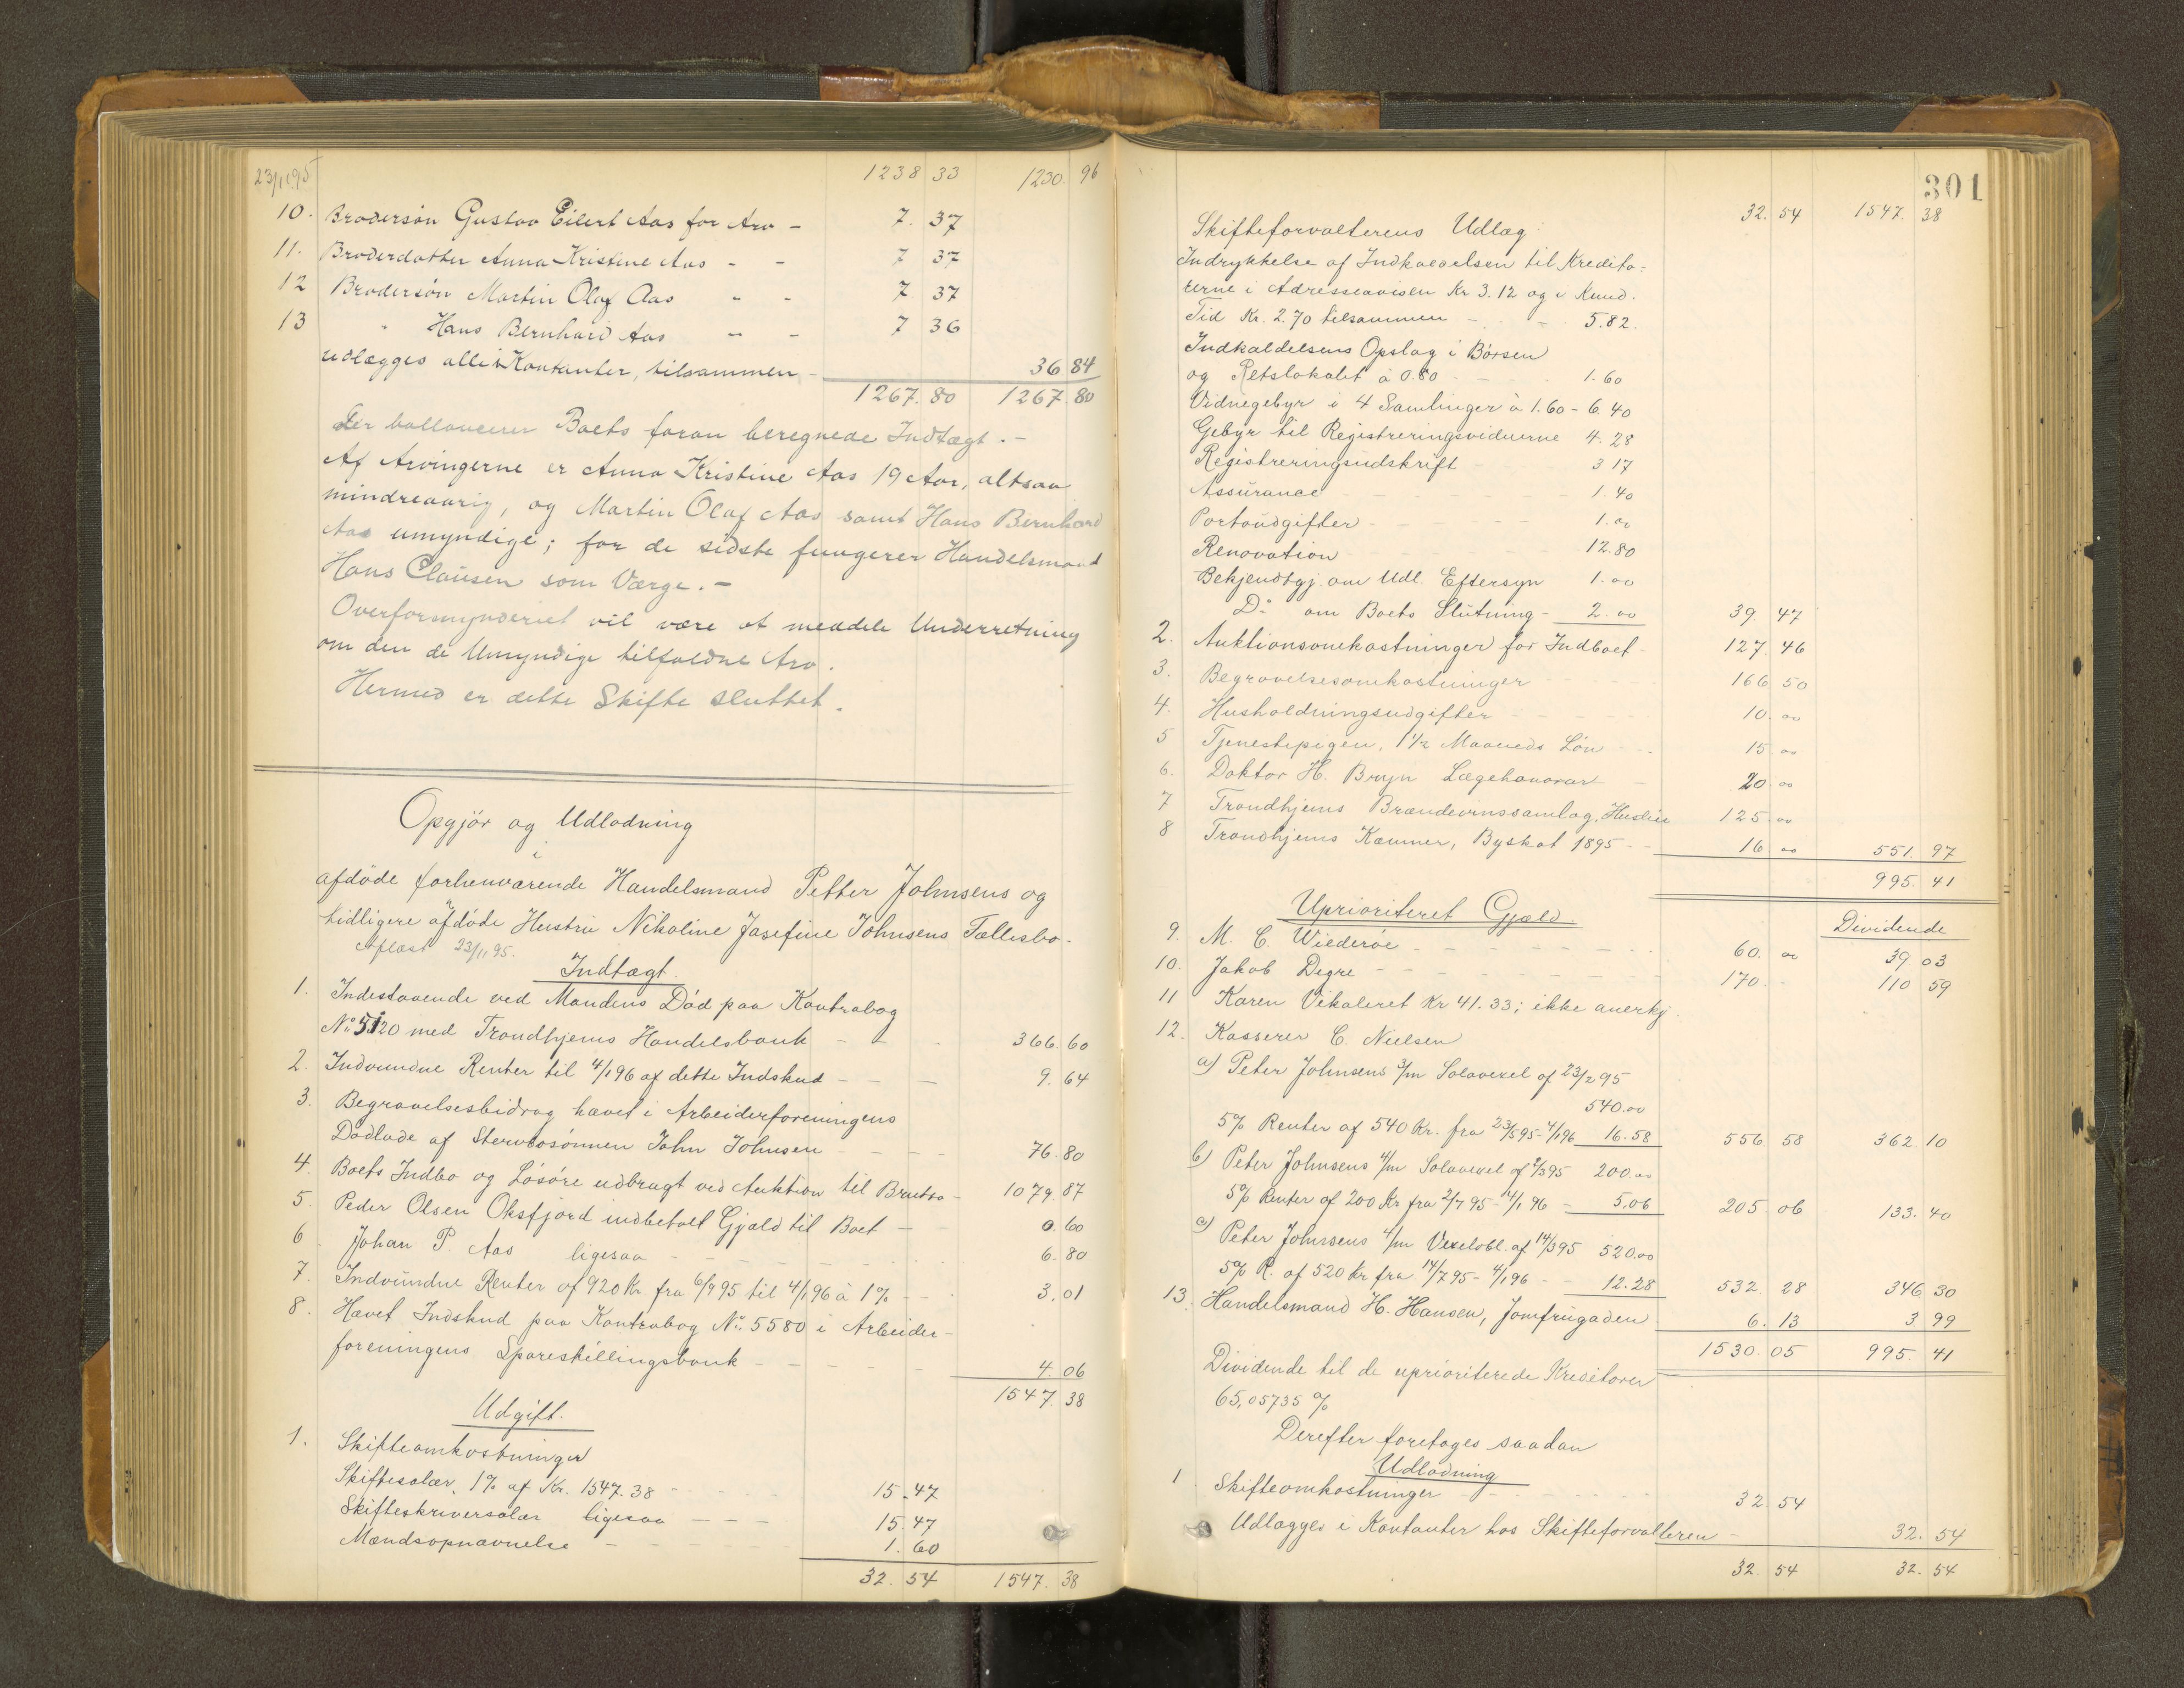 23/11 95 1238 33 1230. 96
10. Brodersøn Gustav Eilert Aas for Arv - 7. 37
11. Broderdatter Anna Kristine Aas - - 7 37
12 Brodersøn Martin Olaf Aas - - 7 37
13 " Hans Bernhard Aas - - 7 36
udlægges alle i Kontanter, tilsammen - 36 84
1267. 80 1267. 80
der ballancerer Boets foran beregnede Indtægt. -
Af Arvingerne er Anna Kristine Aas 19 Aar, altsaa
mindreaarig, og Martin Olaf Aas samt Hans Bernhard
Aas umyndige; for de sidste fungerer Handelsmand
Hans Clausen som Værge. -
Overformynderiet vil være at meddele Underretning
om den de Umyndige tilfaldne Arv.
Hermed er dette Skifte sluttet.
Opgjør og Udlodning
i
afdøde forhenværende Handelsmand Petter Johnsens og
tidligere afdøde Hustru Nikoline Josefine Johnsens Fællesbo.
Aflæst 23/11 95.
Indtægt.
1. Indestaaende ved Mandens Død paa Kontrabog
No 5120 med Trondhjems Handelsbank - - - 366. 60
2. Indvundne Renter til 4/1 96 af dette Indskud - - - 9. 64
3. Begravelsesbidrag hævet i Arbeiderforeningens
Dødlade af Stervbosønnen John Johnsen - - - 76. 80
4. Boets Indbo og Løsøre udbragt ved Auktion til Brutto - 1079. 87
5. Peder Olsen Oksfjord indbetalt Gjæld til Boet - 0. 60
6. Johan P. Aas ligesaa - - - 6. 80
7. Indvundne Renter af 920 Kr. fra 6/9 95 til 4/1 96 à 1% - - 3. 01
8. Hævet Indskud paa Kontrabog No. 5580 i Arbeider-
foreningens Spareskillingsbank - - - 4. 06
1547. 38
Udgift.
1. Skifteomkostninger
Skiftesalær, 1% af Kr. 1547. 38 - - - 15. 47
Skifteskriversalær ligesaa - - - 15. 47
Mændsopnævnelse - - - 1. 60
32. 54 1547. 38
301
32. 54 1547. 38
Skifteforvalterens Udlæg
Indrykkelse af Indkaldelsen til Kredito-
rerne i Adresseavisen Kr 3.12 og i Kund.
Tid Kr. 2.70 tilsammen - - 5.82.
Indkaldelsens Opslag i Børsen
og Retslokalet à 0.80 - - 1.60
Vidnegebyr i 4 Samlinger à 1.60 - 6.40
Gebyr til Registreringsvidnerne 4.28
Registreringsudskrift - 3 17
Assurance - - - 1.40
Portoudgifter - - - 1.00
Renovation - - - 12.80
Bekjendtgj. om Udl. Eftersyn 1.00
Do om Boets Slutning - 2.00 39 47
2. Auktionsomkostninger for Indboet - 127. 46
3. Begravelsesomkostninger - - - 166 50
4. Husholdningsudgifter - - - 10. 00
5 Tjenestepigen, 1 1/2 Maaneds Løn - - 15. 00
6. Doktor H. Bryn Lægehonorar - 20. 00
7 Trondhjems Brændevinssamlag, Husleie 125 00
8 Trondhjems Kæmner, Byskat 1895 - - 16 00 551. 97
995. 41
Uprioriteret Gjæld. Dividende
9. M. C. Wiederøe - - - 60. 00 39 03
10. Jakob Digre - - - 170. - 110 59
11 Karen Vikaleret Kr 41.33; ikke anerkj.
12. Kasserer C. Nielsen
a) Peter Johnsens 3/m Solavexel af 23/2 95
540.00
5% Renter af 540 Kr. fra 23/5 95 - 4/1 96 16.58 556 58 362. 10
b) Peter Johnsens 4/m Solavexel af 2/3 95 200.00
5% Renter af 200 Kr fra 2/7 95 - 4/1 96 - 5.06 205. 06 133. 40
c) Peter Johnsens 4/m Vexelobl. af 14/3 95 520.00
5% R. af 520 Kr fra 14/7 95 - 4/1 96 - - 12.28 532. 28 346 30
13. Handelsmand H. Hansen, Jomfrugaden 6. 13 3 99
1530. 05 995. 41
Dividende til de uprioriterede Kreditorer
65,05735 %
Derefter foretages saadan
Udlodning
1 Skifteomkostninger - - - 32. 54
Udlægges i Kontanter hos Skifteforvalteren - 32. 54
32. 54 32. 54